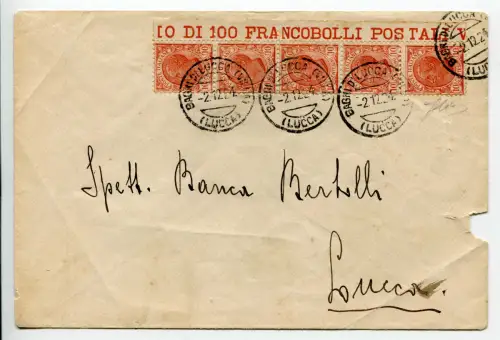 IO DI 100 FRANCOBOLLI POSTALI V
BAGNI DI LUCCA
-2.12.24
(LUCCA)
BAGNI DI LUCCA
-2.12.24
(LUCCA)
BAGNI DI LUCCA
-2.12.24
(LUCCA)
BAGNI DI LUCCA
-2.12.24
(LUCCA)
Spett. Banca Bertolli
Lucca